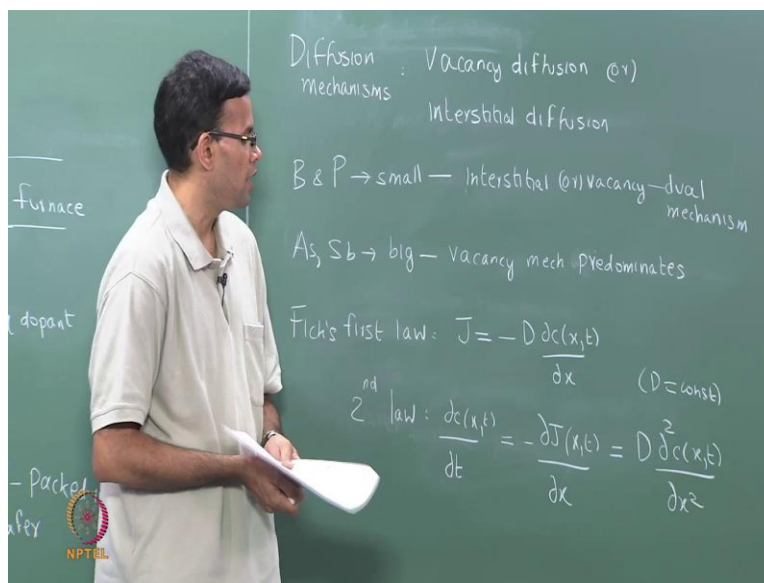 furnace
dopant
- Packed
afer
NPTEL
Diffusion mechanisms : Vacancy diffusion (or)
Interstitial diffusion
B & P → small — Interstitial (or) vacancy — dual mechanism
As, Sb → big — vacancy mech predominates
Fick's first law : J = - D ∂c(x,t)/∂x
(D = const)
2nd law : ∂c(x,t)/∂t = - ∂J(x,t)/∂x = D ∂²c(x,t)/∂x²